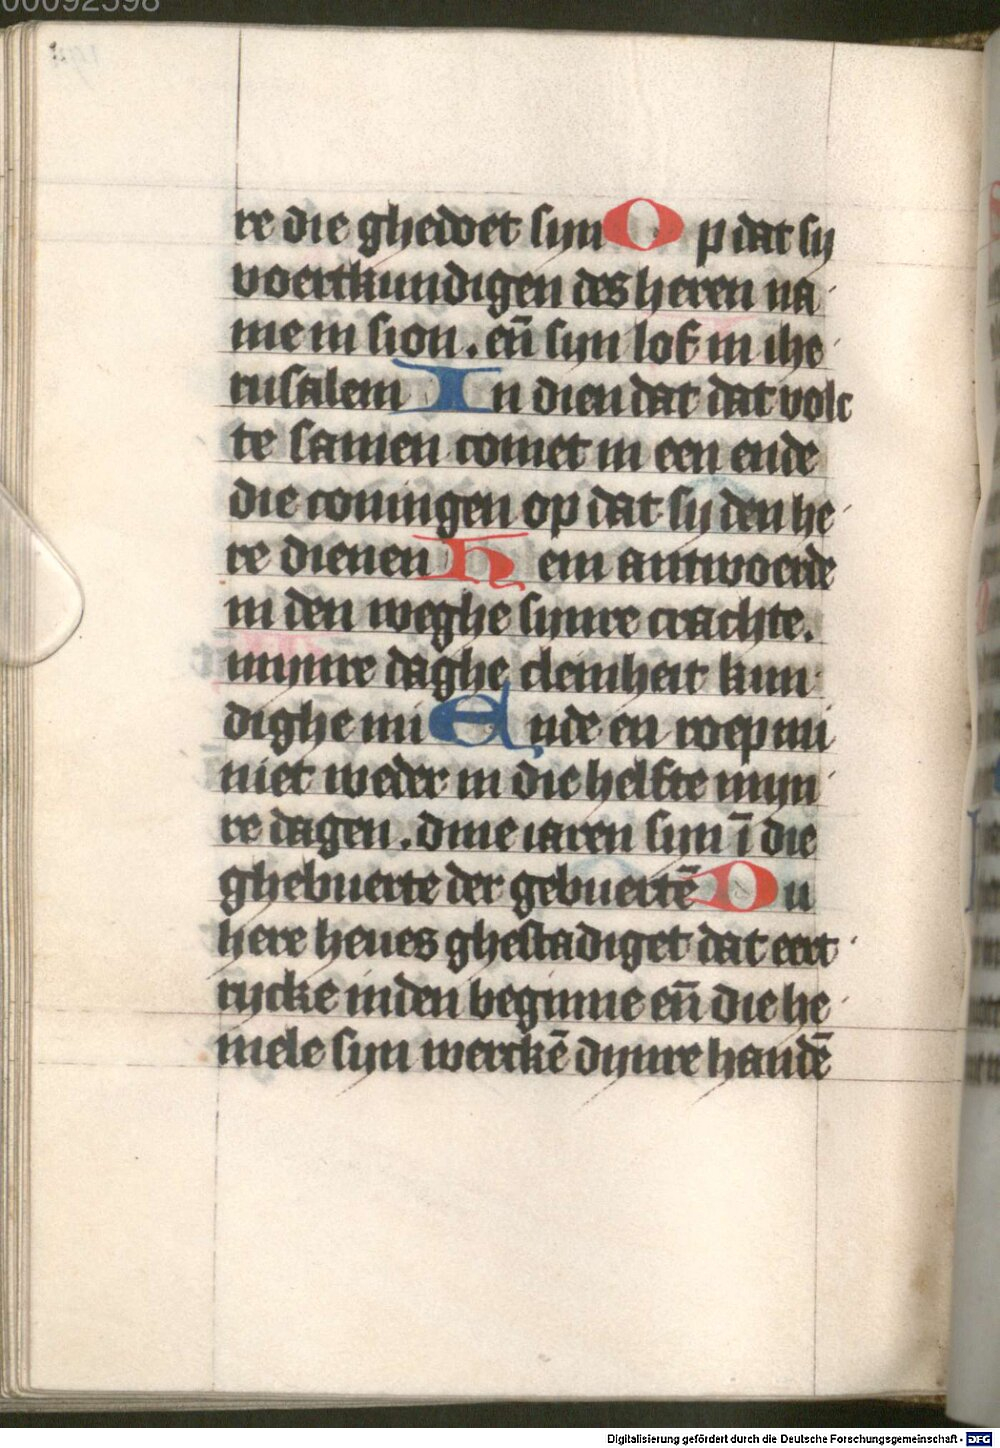 00092598
re die ghedoet sijn Op dat sij
voertkundigen des heren na
me in sion. eñ sijn lof in ihe
rusalem In dien dat dat volc
te samen comet in een ende
die coningen op dat sij den he
re dienen Hem antwoerde
in den weghe sijnre crachte.
mijnre daghe cleinheit kun
dighe mi Ende en roep mi
niet weder in die helfte mijn
re dagen. dine iaren sijn ī die
ghebuerte der gebuertē Du
here heues ghestadiget dat eert
rijcke inden beginne eñ die he
mele sijn werckē dijnre handē
Digitalisierung gefördert durch die Deutsche Forschungsgemeinschaft - DFG